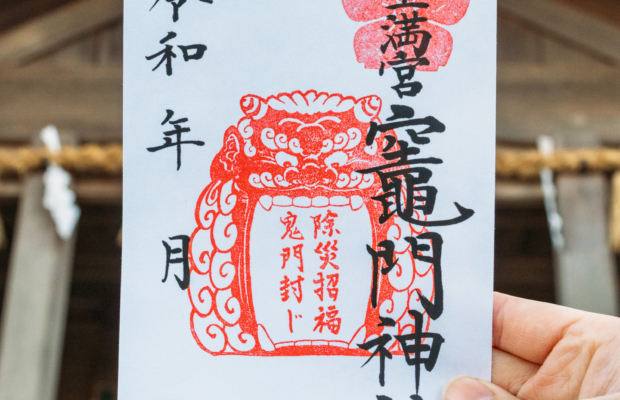 満宮
竈門神
除災招福
鬼門封じ
令和 年 月